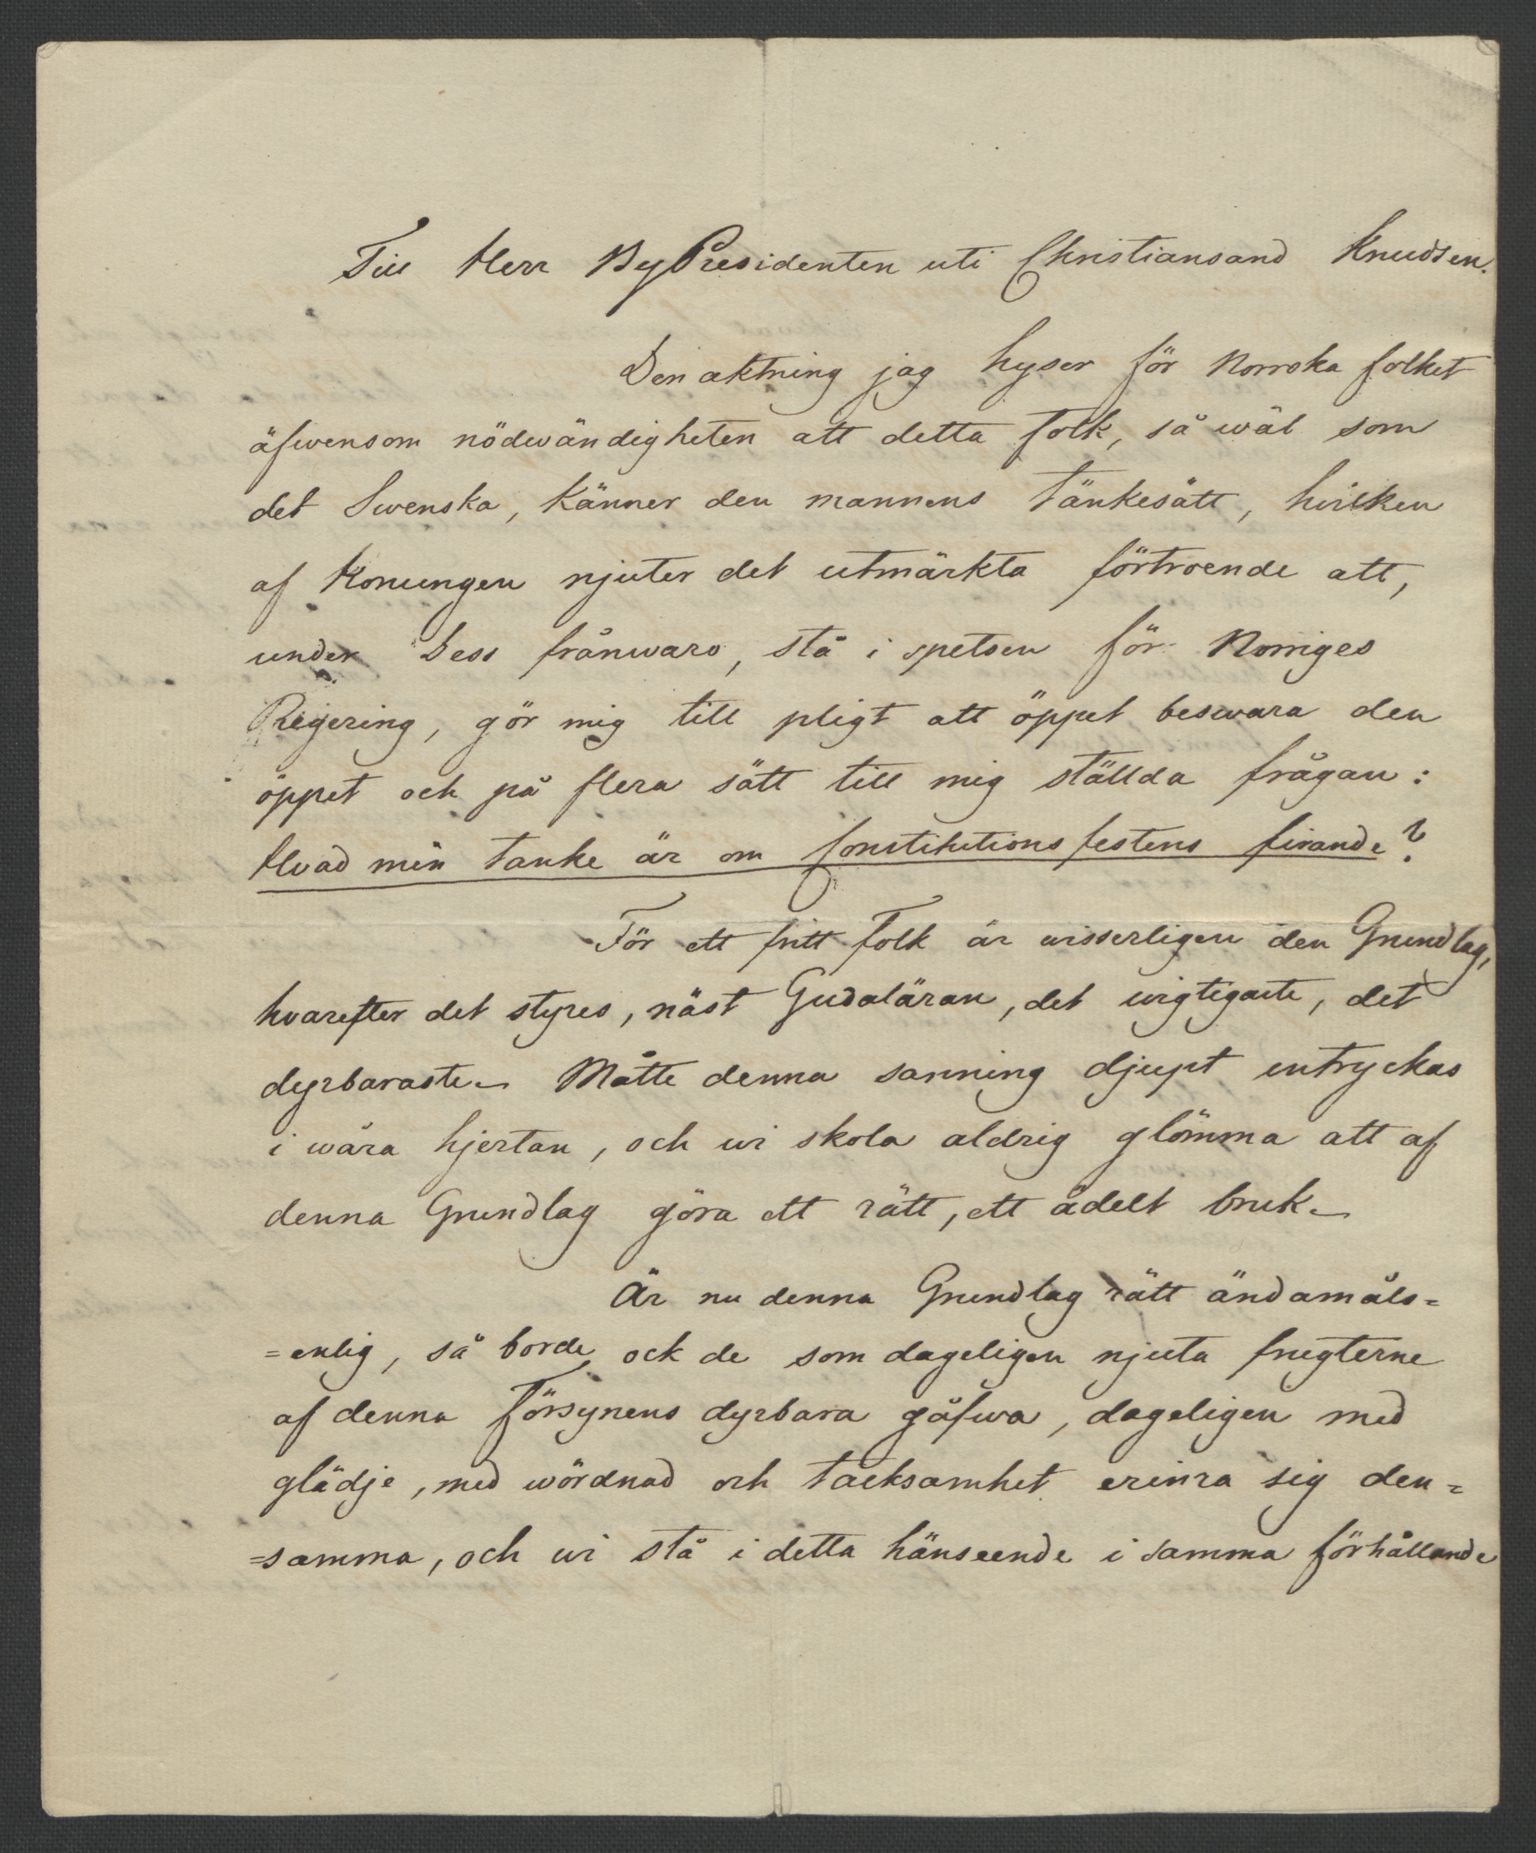 Till Herr ByPresidenten uti Christiansand Knudsen.
Den aktning jag hyser för Norrska folket
äfwensom nödwändigheten att detta folk, så wäl som
det Swenska, känner den mannens tänkesätt, hvilken
af Konungen njuter det utmärkta förtroende att,
under Dess frånwaro, stå i spetsen för Norriges
Regering, gör mig till pligt att öppet beswara den
öppet och på flera sätt till mig ställda frågan:
Hvad min tanke är om Constitutionsfestens firande?
För ett fritt Folk är wisserligen den Grundlag,
hvarefter det styres, näst Gudaläran, det wigtigaste, det
dyrbaraste. Måtte denna sanning djupt intryckas
i wåra hjertan, och wi skola aldrig glömma att af
denna Grundlag göra ett rätt, ett ädelt bruk.
Är nu denna Grundlag rätt ändamåls=
=enlig, så borde ock de som dageligen njuta frugterne
af denna Försynens dyrbara gåfwa, dageligen med
glädje, med wördnad och tacksamhet erinra sig den=
=samma, och wi stå i detta hänseende i samma förhållande